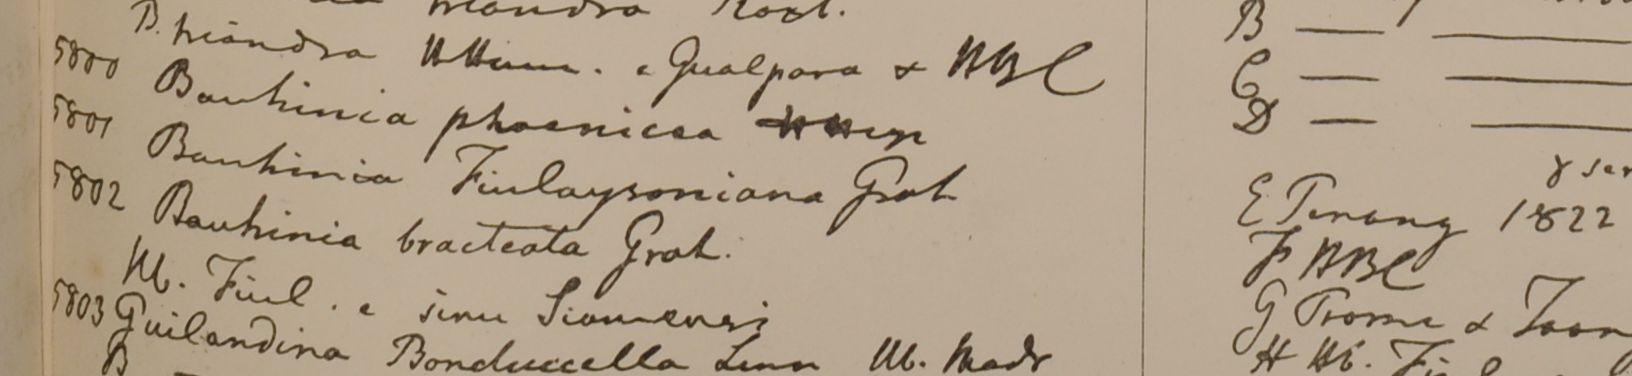 triandra Roxb.
B. triandra HHam. e Gualpara & HBC
5800 Bauhinia phoenicea
5801 Bauhinia Finlaysoniana Grah
5802 Bauhinia bracteata Grah.
Hb. Finl. e sinu Siamensi
5803 Guilandina Bonduccella Linn Hb. Madr
B
B
C
D
E Penang 1822
F HBC
G Prome &
H Hb.